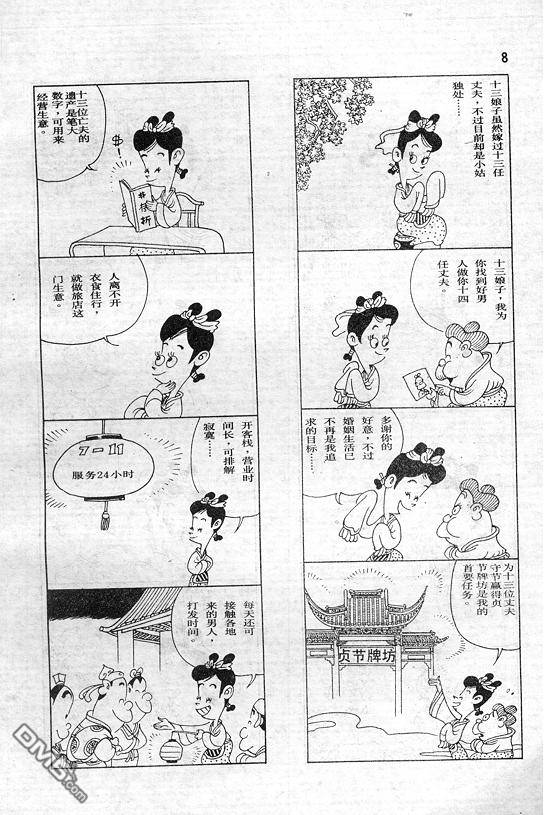 8
十三娘子虽然嫁过十三任
丈夫，不过目前却是小姑
独处……
十三娘子，我为
你找到好男
人做你十四
任丈夫。
多谢你的
好意，不过
婚姻生活已
不再是我追
求的目标……
为十三位丈夫
守节赢得贞
节牌坊是我的
首要任务。
贞节牌坊
十三位亡夫的
遗产是笔大
数字，可用来
经营生意。
$
存
折
人离不开
衣食住行，
就做旅店这
门生意。
7-11
服务24小时
开客栈，营业时
间长，可排解
寂寞……
每天还可
接触各地
来的男人，
打发时间。